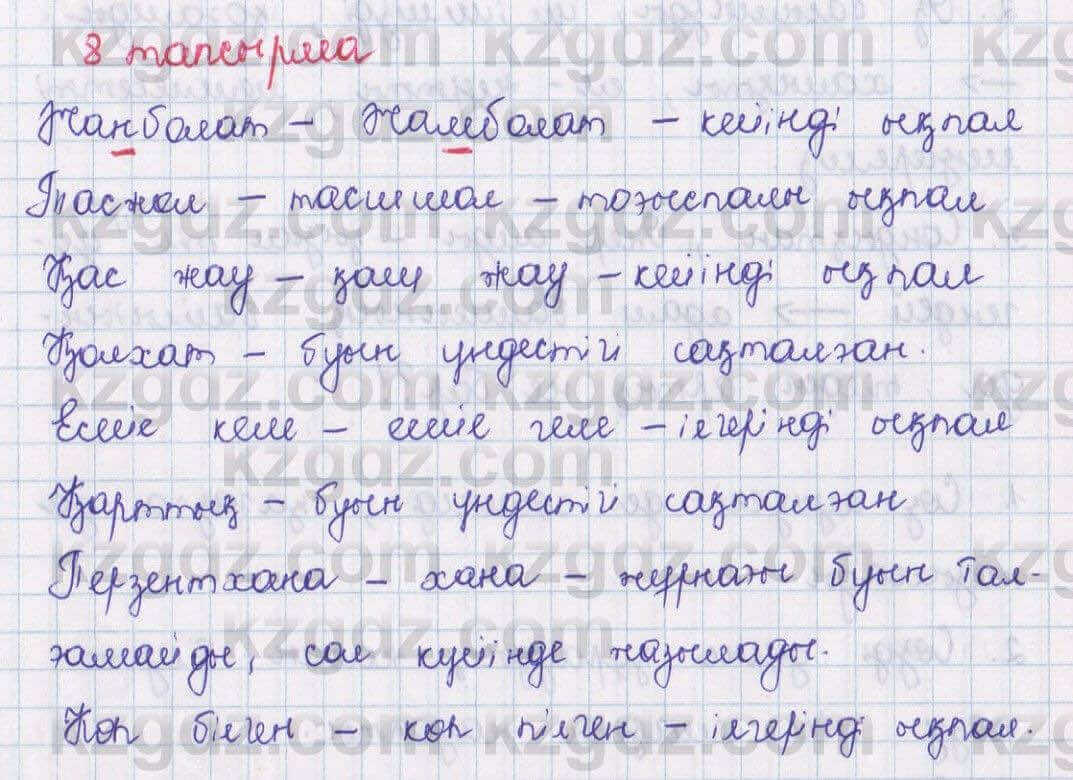 8 тапсырма
Жанболат - Жамболат - кейінді ықпал
Тасжол - тасшшол - тоғыспалы ықпал
Қас жау - қаш жау - кейінді ықпал
Қолхат - буын үндестігі сақталған.
Есіңе келе - есіңе геле - ілгерінді ықпал
Қарттық - буын үндестігі сақталған
Перзентхана - хана - жұрнағы буын тал-
ғамайды, сол күйінде жазылады.
Көп білген - көп пілген - ілгерінді ықпал.
kzgdz.com